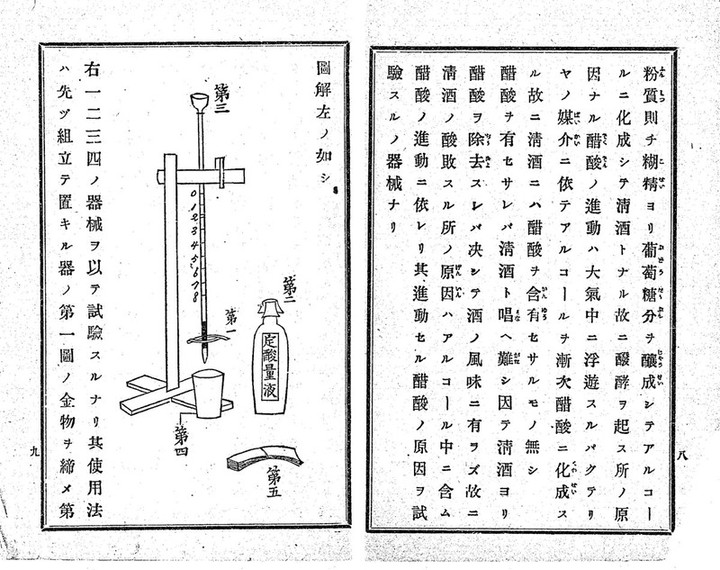 粉質則チ糊精ヨリ葡萄糖分ヲ釀成シテアルコー
ルニ化成シテ清酒トナル故ニ醱酵ヲ起ス所ノ原
因ナル醋酸ノ進動ハ大氣中ニ浮遊スルバクテリ
ヤノ媒介ニ依テアルコールヲ漸次醋酸ニ化成ス
ル故ニ清酒ニハ醋酸ヲ含有セサルモノ無シ
醋酸ヲ有セサレバ清酒ト唱ヘ難シ因テ清酒ヨリ
醋酸ヲ除去スレバ决シテ酒ノ風味ニ有ラズ故ニ
清酒ノ酸敗スル所ノ原因ハアルコール中ニ含ム
醋酸ノ進動ニ依レリ其進動セル醋酸ノ原因ヲ試
驗スルノ器械ナリ
八
圖解左ノ如シ
第三
0
1
2
3
4
5
6
7
8
第一
第二
定酸量液
第四
第五
右一二三四ノ器械ヲ以テ試驗スルナリ其使用法
ハ先ヅ組立テ置キル器ノ第一圖ノ金物ヲ締メ第
九